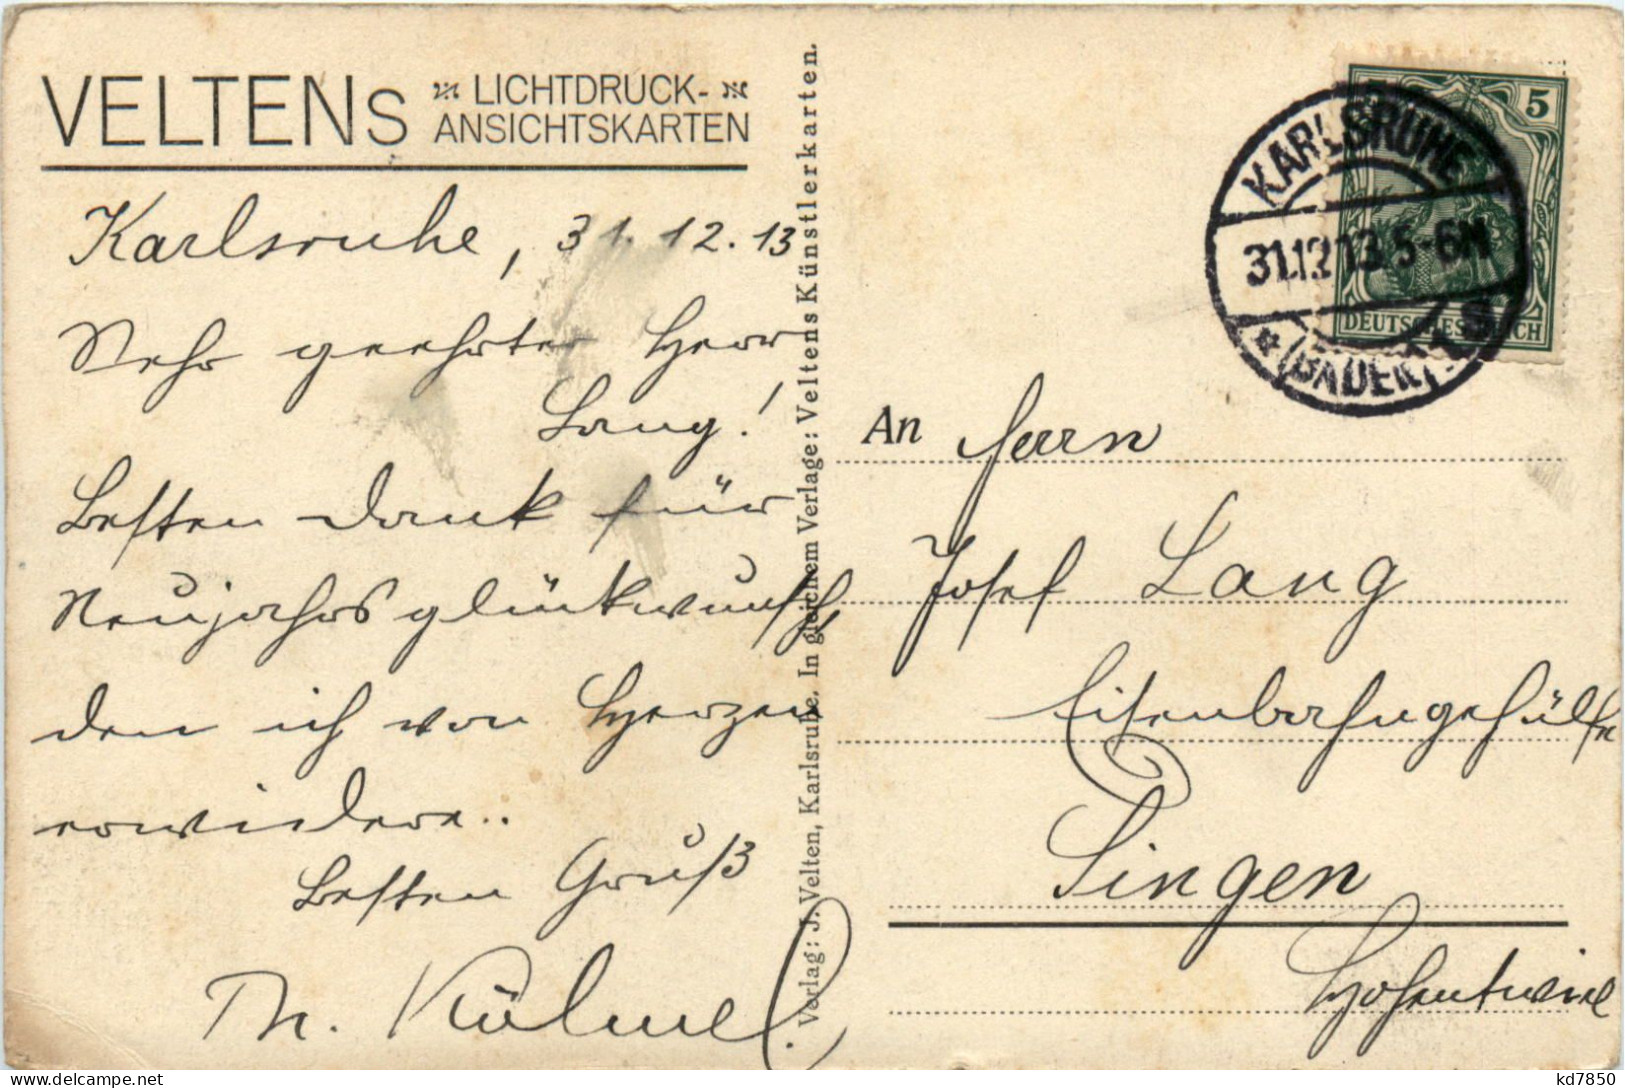 VELTENs LICHTDRUCK-
ANSICHTSKARTEN
Karlsruhe, 31.12.13
Sehr geehrter Herr
Lang!
Besten Dank für
Neujahrsglückwunsch,
den ich von Herzen
erwidere..
Besten Gruß
Th. Külmel.
Verlag: J. Velten, Karlsruhe. In gleichem Verlage: Veltens Künstlerkarten.
5
DEUTSCHES REICH
KARLSRUHE
31.12.13.5-6N
* (BADEN)
An Herrn
Josef Lang
Eisenbahngehülfe
Singen
Hohentwiel
kd7850